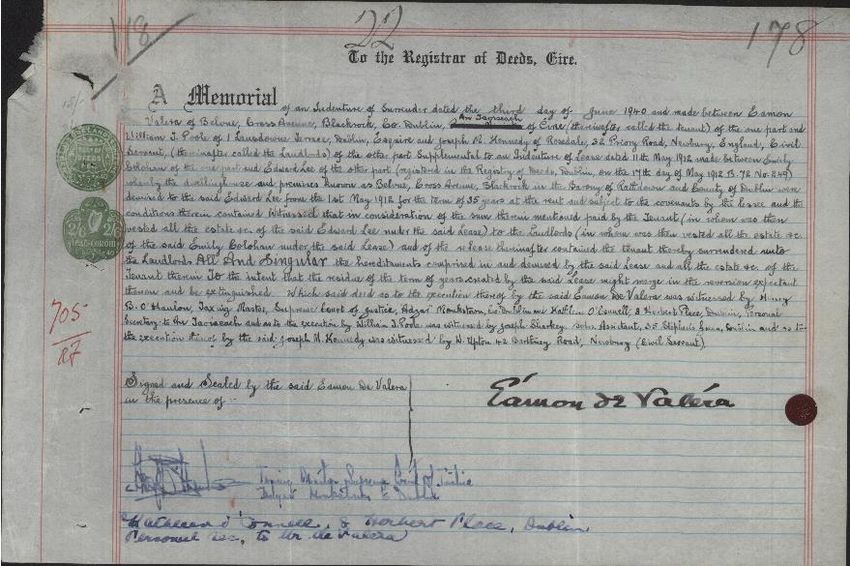 118
22
178
To the Registrar of Deeds, Eire.
A Memorial of an Indenture of Surrender dated the third day of June 1940 and made between Eamon
Valera of Belvue, Cross Avenue, Blackrock, Co. Dublin, An Taoiseach of Eire (hereinafter called the tenant) of the one part and
William J. Poole of 1 Lansdowne Terrace, Dublin, Esquire and Joseph M. Kennedy of Rosedale, 32 Priory Road, Newbury, England, Civil
Servant, (hereinafter called the Landlords) of the other part Supplemental to an Indenture of Lease dated 11th May 1912 made between Emily
Colohan of the one part and Edward Lee of the other part (registered in the Registry of Deeds, Dublin, on the 17th day of May 1912 B. 72 No. 249)
whereby the dwellinghouse and premises known as Belvue, Cross Avenue, Blackrock in the Barony of Rathdown and County of Dublin were
demised to the said Edward Lee from the 1st May 1912 for the term of 35 years at the rent and subject to the covenants by the lessee and the
conditions therein contained Witnessed that in consideration of the sum therein mentioned paid by the Tenant (in whom was then
vested all the estate &c. of the said Edward Lee under the said Lease) to the Landlords (in whom was then vested all the estate &c.
of the said Emily Colohan under the said Lease) and of the release thereinafter contained the tenant thereby surrendered unto
the Landlords All And Singular the hereditaments comprised in and demised by the said Lease and all the estate &c. of the
Tenant therein To the intent that the residue of the term of years created by the said Lease might merge in the reversion expectant
thereon and be extinguished. Which said deed as to the execution thereof by the said Eamon De Valera was witnessed by Henry
B. O'Hanlon, Taxing Master, Supreme Court of Justice, Monkstown, Co. Dublin and O'Connell, 2 Herbert Place, Dublin, Personal
Secretary to An Taoiseach and as to the execution by William J. Poole was witnessed by Joseph Sharkey, 35 Stephens Green, Dublin and as to
the execution thereof by the said Joseph M. Kennedy was witnessed by W. Upton 42 Road, Newbury (Civil Servant)
2/6 2/6
705
27
Signed and Sealed by the said Eamon De Valera
in the presence of :-
Éamon de Valéra
Taxing Master Supreme Court of Justice
Monkstown Co Dublin
Kathleen O'Connell, 2 Herbert Place, Dublin
Personal Sec, to Mr. de Valera